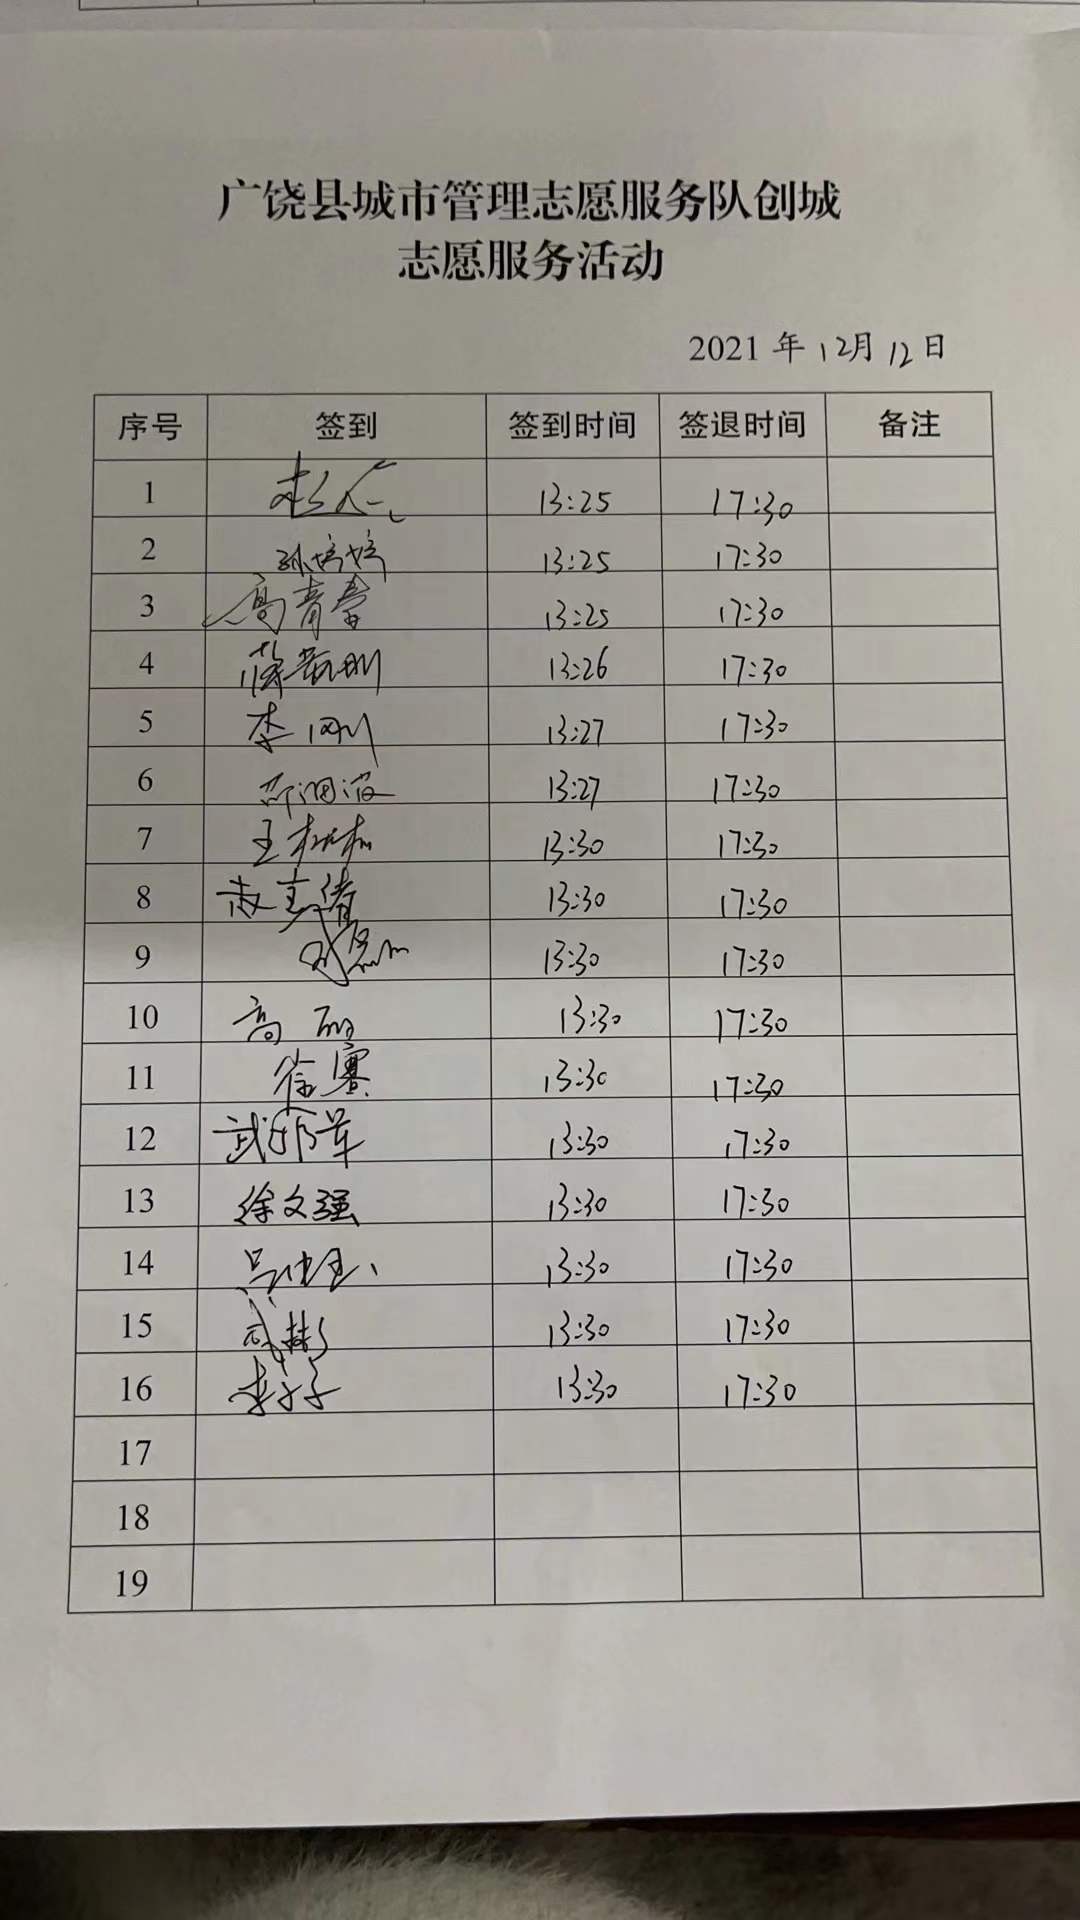 广饶县城市管理志愿服务队创城
志愿服务活动
2021 年 12月 12日
序号 签到 签到时间 签退时间 备注
1 13:25 17:30
2 孙婷婷 13:25 17:30
3 高青 13:25 17:30
4 13:26 17:30
5 李刚 13:27 17:30
6 13:27 17:30
7 王 13:30 17:30
8 13:30 17:30
9 13:30 17:30
10 高丽 13:30 17:30
11 徐赛 13:30 17:30
12 武 军 13:30 17:30
13 徐文强 13:30 17:30
14 13:30 17:30
15 武彬 13:30 17:30
16 李子 13:30 17:30
17
18
19